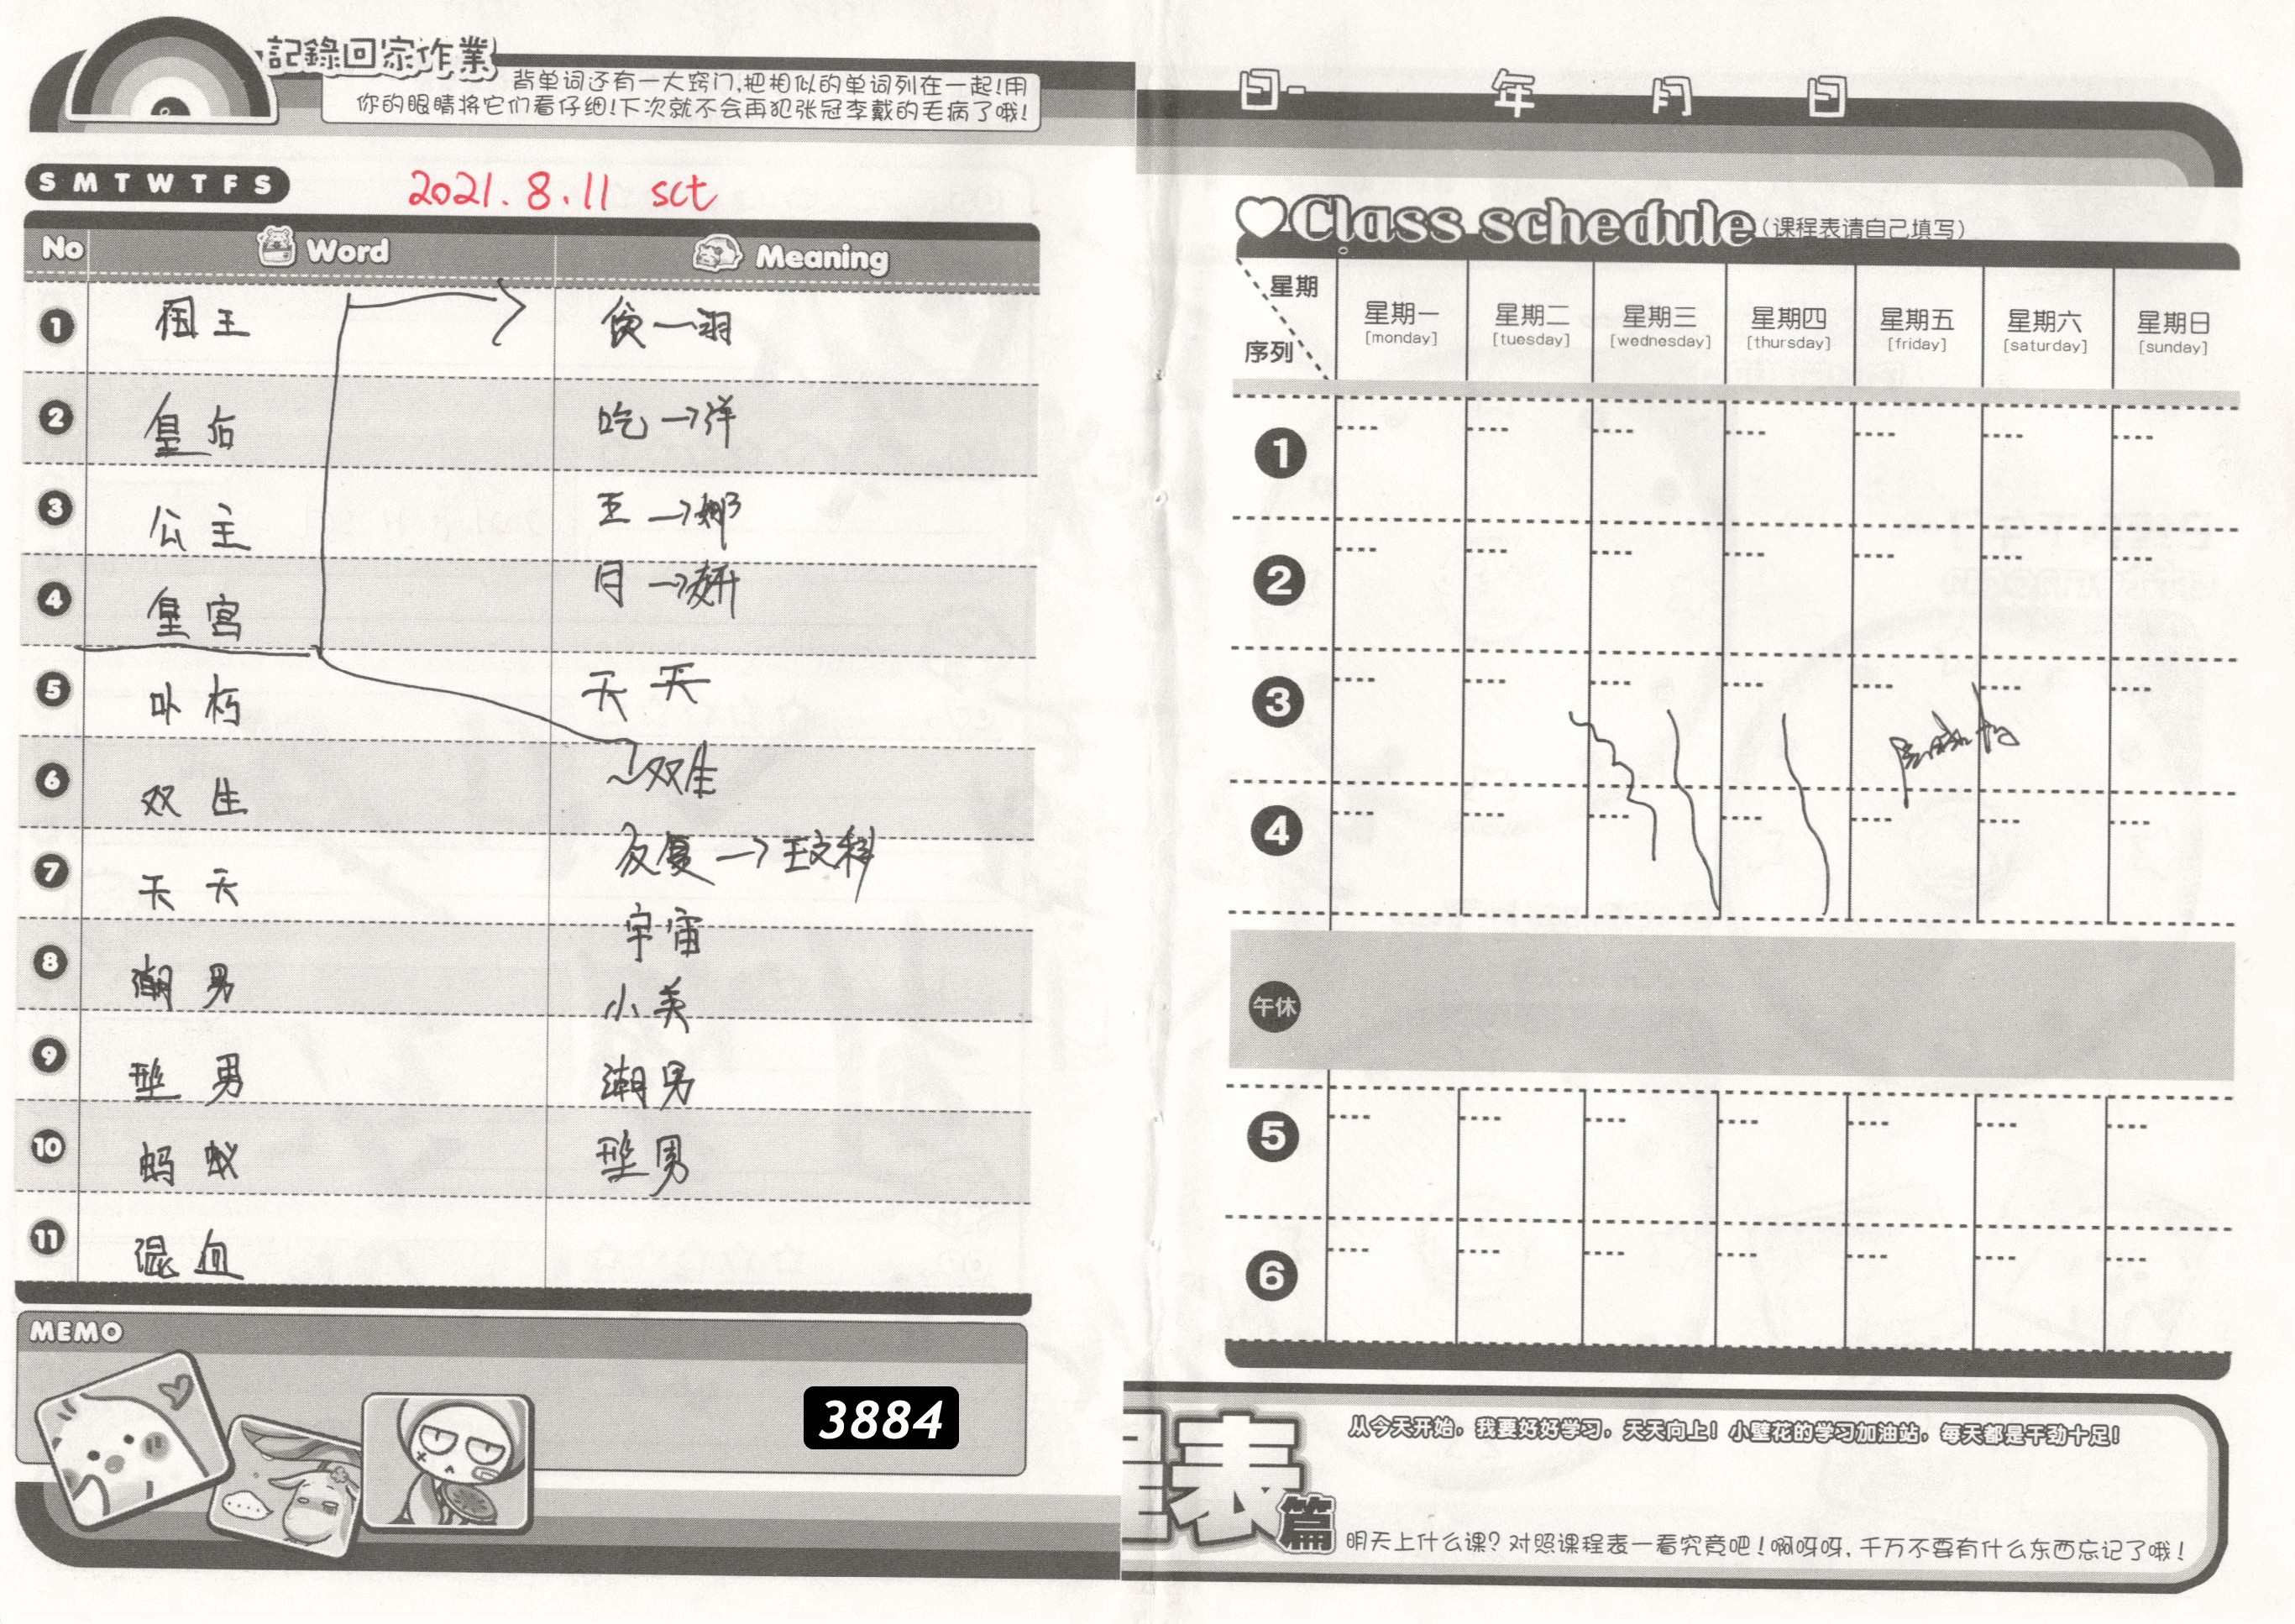 記錄回家作業
背单词还有一大窍门,把相似的单词列在一起!用
你的眼睛将它们看仔细!下次就不会再犯张冠李戴的毛病了哦!
S M T W T F S
2021.8.11 sct
No Word Meaning
1 国王
2 皇后 吃→洋
3 公主 王→娜
4 皇宫 月→妍
5 天天
6 双生 双生
7 天天 反复→王文科
宇宙
8 潮男 小美
9 型男 潮男
10 蚂蚁 型男
11 混血
MEMO
3884
年 月 日
Class schedule (课程表请自己填写)
星期 序列 星期一 星期二 星期三 星期四 星期五 星期六 星期日
[monday] [tuesday] [wednesday] [thursday] [friday] [saturday] [sunday]
1
2
3
4
午休
5
6
表篇
从今天开始,我要好好学习,天天向上!小壁花的学习加油站,每天都是干劲十足!
明天上什么课?对照课程表一看究竟吧!啊呀呀,千万不要有什么东西忘记了哦!